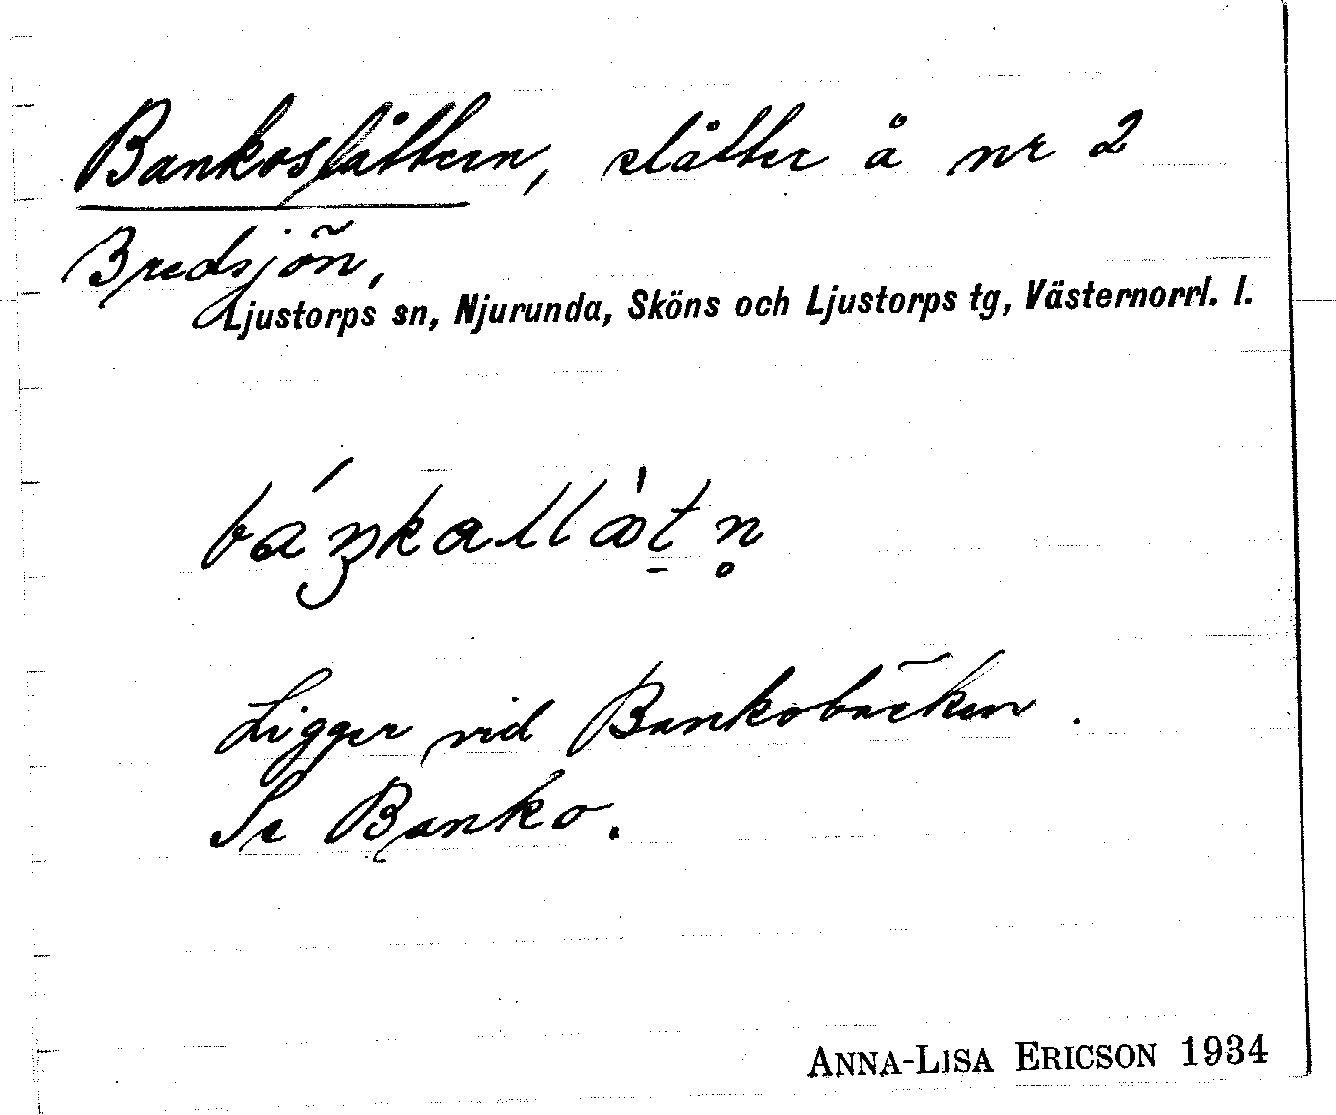 Bankoslåttern, slåtter å nr 2
Bredsjön,
Ljustorps sn, Njurunda, Sköns och Ljustorps tg, Västernorrl. l.
Ligger vid Bankobäcken.
Se Banko.
ANNA-LISA ERICSON 1934